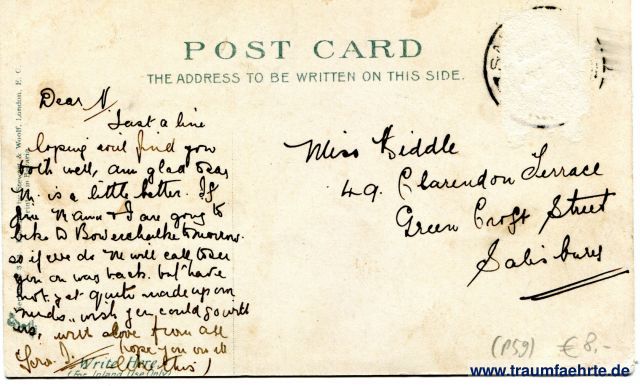 POST CARD
THE ADDRESS TO BE WRITTEN ON THIS SIDE.
Dear N.
Just a line
hoping will find you
both well, am glad dear
M. is a little better. If
fine & I are going to
bike to Bowerchalke tomorrow.
so if we do M will call to see
you on way back. but have
not yet quite made up our
minds. wish you could go with
us, with love from all
hope you on
this)
Write Here
(For Inland Use Only)
Miss Kiddle
49. Clarendon Terrace
Green Croft Street
Salisbury
& Woolf, London, E. C.
(P59) €8,-
www.traumfaehrte.de